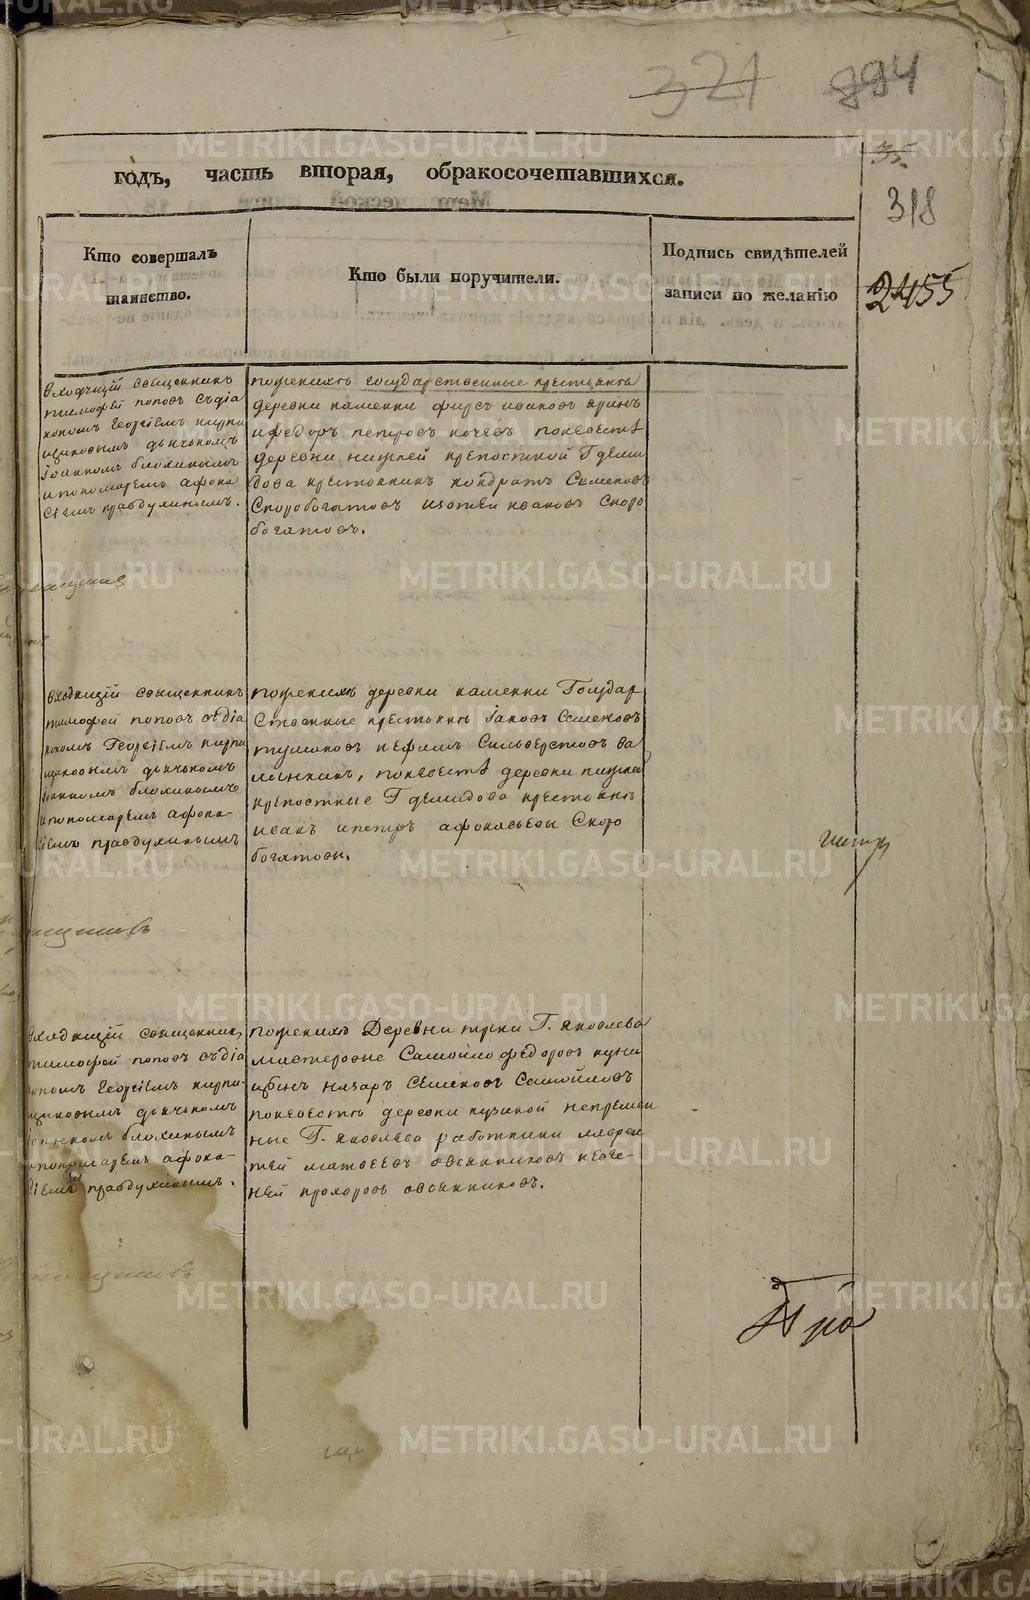 321 894
35.
годъ, часть вторая, обракосочетавшихся.
318
Кто совершалъ
таинство.
Кто были поручители.
Подпись свидѣтелей
записи по желанію
2455
входящій священникъ
тимофей поповъ съдіа
кономъ Георгіемъ кирпи
щиковымъ дьячькомъ
Іоанномъ блохинымъ
ипономаремъ афона
сіемъ правдухинымъ.
поженихѣ государственные крестьяня
деревни каменки фирсъ ивановъ
ифедоръ петровъ кочевъ поневестѣ
деревни нижней крепостной Г деми
дова крестьянинъ кондратъ Семеновъ
Скоробогатовъ изотей ивановъ Скоро
богатовъ.
входящій священникъ
тимофей поповъ съдіа
кономъ Георгіемъ кирпи
щиковымъ дьячькомъ
Іоанномъ блохинымъ
ипономаремъ афона-
сіемъ правдухинымъ
поженихѣ деревни каменки Государ
Ственные крестьяня Іаковъ Семеновъ
тумаковъ иефимъ Сильверстовъ Ва
поневестѣ деревни нижней
крепостные Г демидова крестьяня
исакъ ипетръ афонасьевы Скоро
богатовы.
входящій священникъ
тимофей поповъ съдіа
кономъ Георгіемъ кирпи-
щиковымъ дьячькомъ
Іоанномъ блохинымъ
ипономаремъ афона-
сіемъ правдухинымъ.
поженихѣ Деревни треки Г. яковлева
мастеровые Самойло федоровъ куни
цынъ назаръ Семеновъ Самойловъ
поневестѣ деревни кузиной непремен
ные Г. яковлева работники лаврен
тей матвеевъ овсянниковъ иевге-
ней прохоровъ овсянниковъ.
METRIKI.GASO-URAL.RU